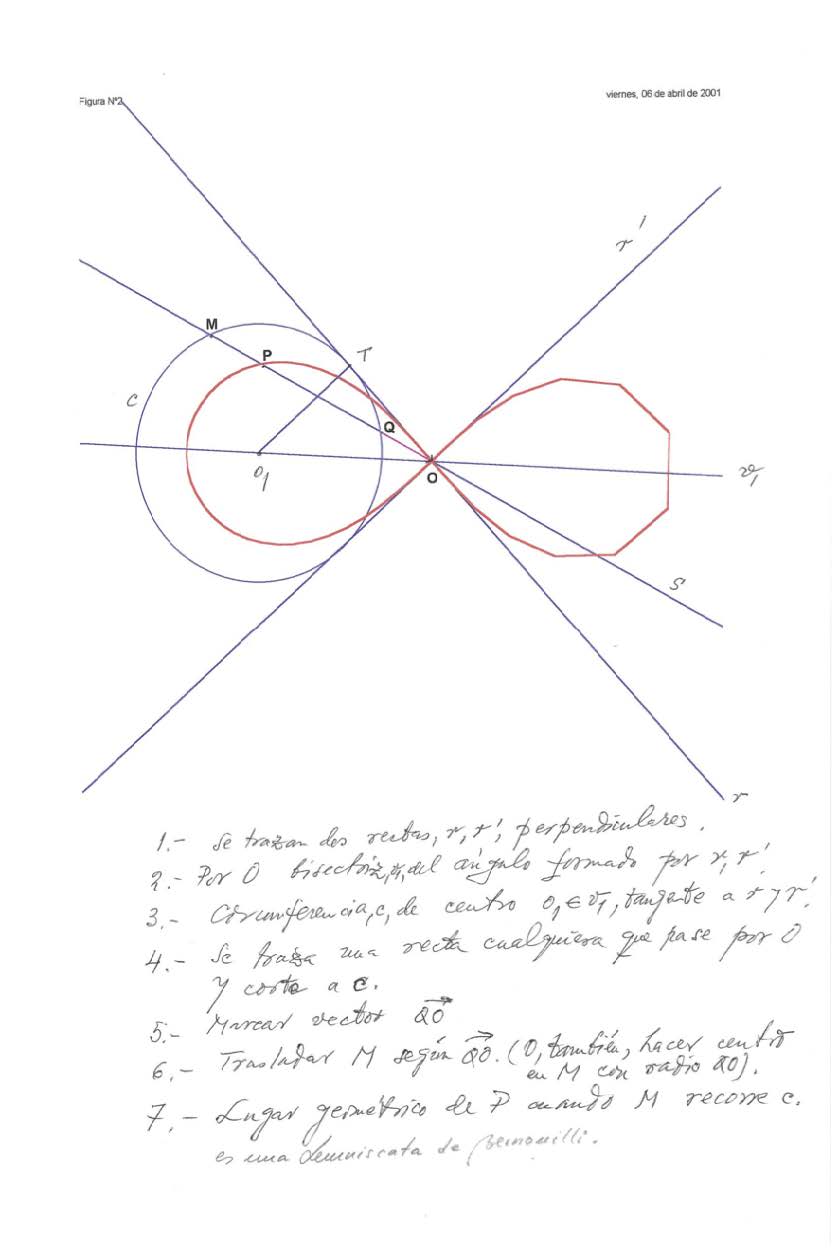 Figura Nº2
viernes, 06 de abril de 2001
r'
M
P
T
C
Q
O1
O
v1
s
r
1.- Se trazan dos rectas, r, r', perpendiculares.
2.- Por O bisectriz, v1, del ángulo formado por r, r'.
3.- Circunferencia, c, de centro O1 ∈ v1, tangente a r y r'.
4.- Se traza una recta cualquiera que pase por O
y corte a c.
5.- Marcar vector QO
6.- Trasladar M según QO. (O, también, hacer centro
en M con radio QO).
7.- Lugar geométrico de P cuando M recorre c.
es una Lemniscata de Bernouilli.